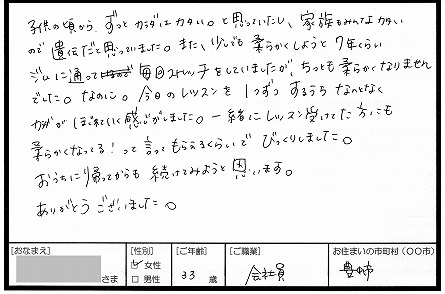 子供の頃から、ずっとカラダはカタい。と思っていたし、家族もみんなカタい
ので遺伝だと思っていました。また、少しでも柔らかくしようと7年くらい
ジムに通って毎回ストレッチをしていましたが、ちっとも柔らかくなりません
でした。なのに。今日のレッスンを1つずつするうちなんとなく
カラダがほぐれていく感じがしました。一緒にレッスン受けてた方にも
柔らかくなってる！って言ってもらえるくらいでびっくりしました。
おうちに帰ってからも続けてみようと思います。
ありがとうございました。
[おなまえ] [性別] [ご年齢] [ご職業] お住まいの市町村（〇〇市）
さま 女性 男性 33 歳 会社員